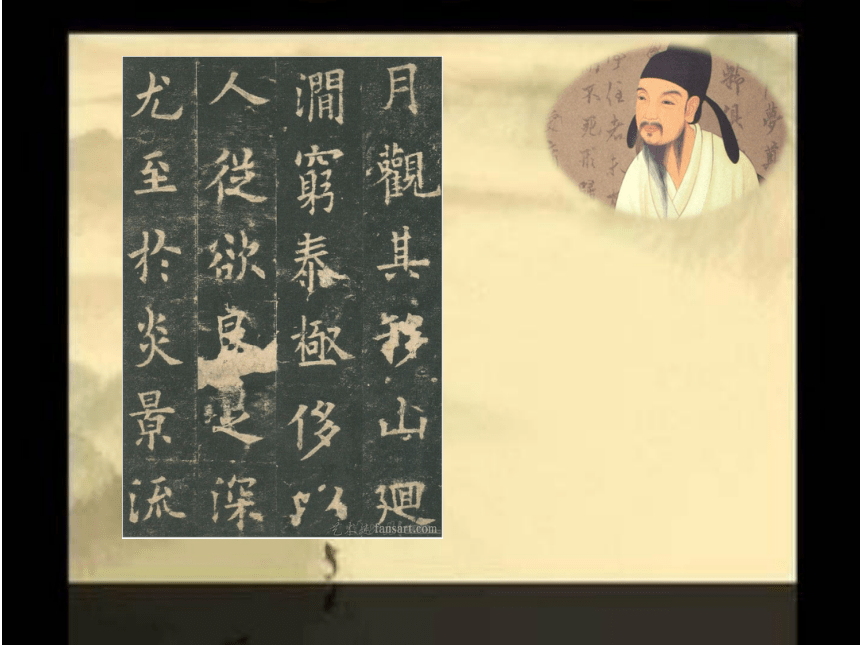 月觀其移山廻
澗窮泰極侈以
人從欲良足深
尤至於炎景流
fansart.com